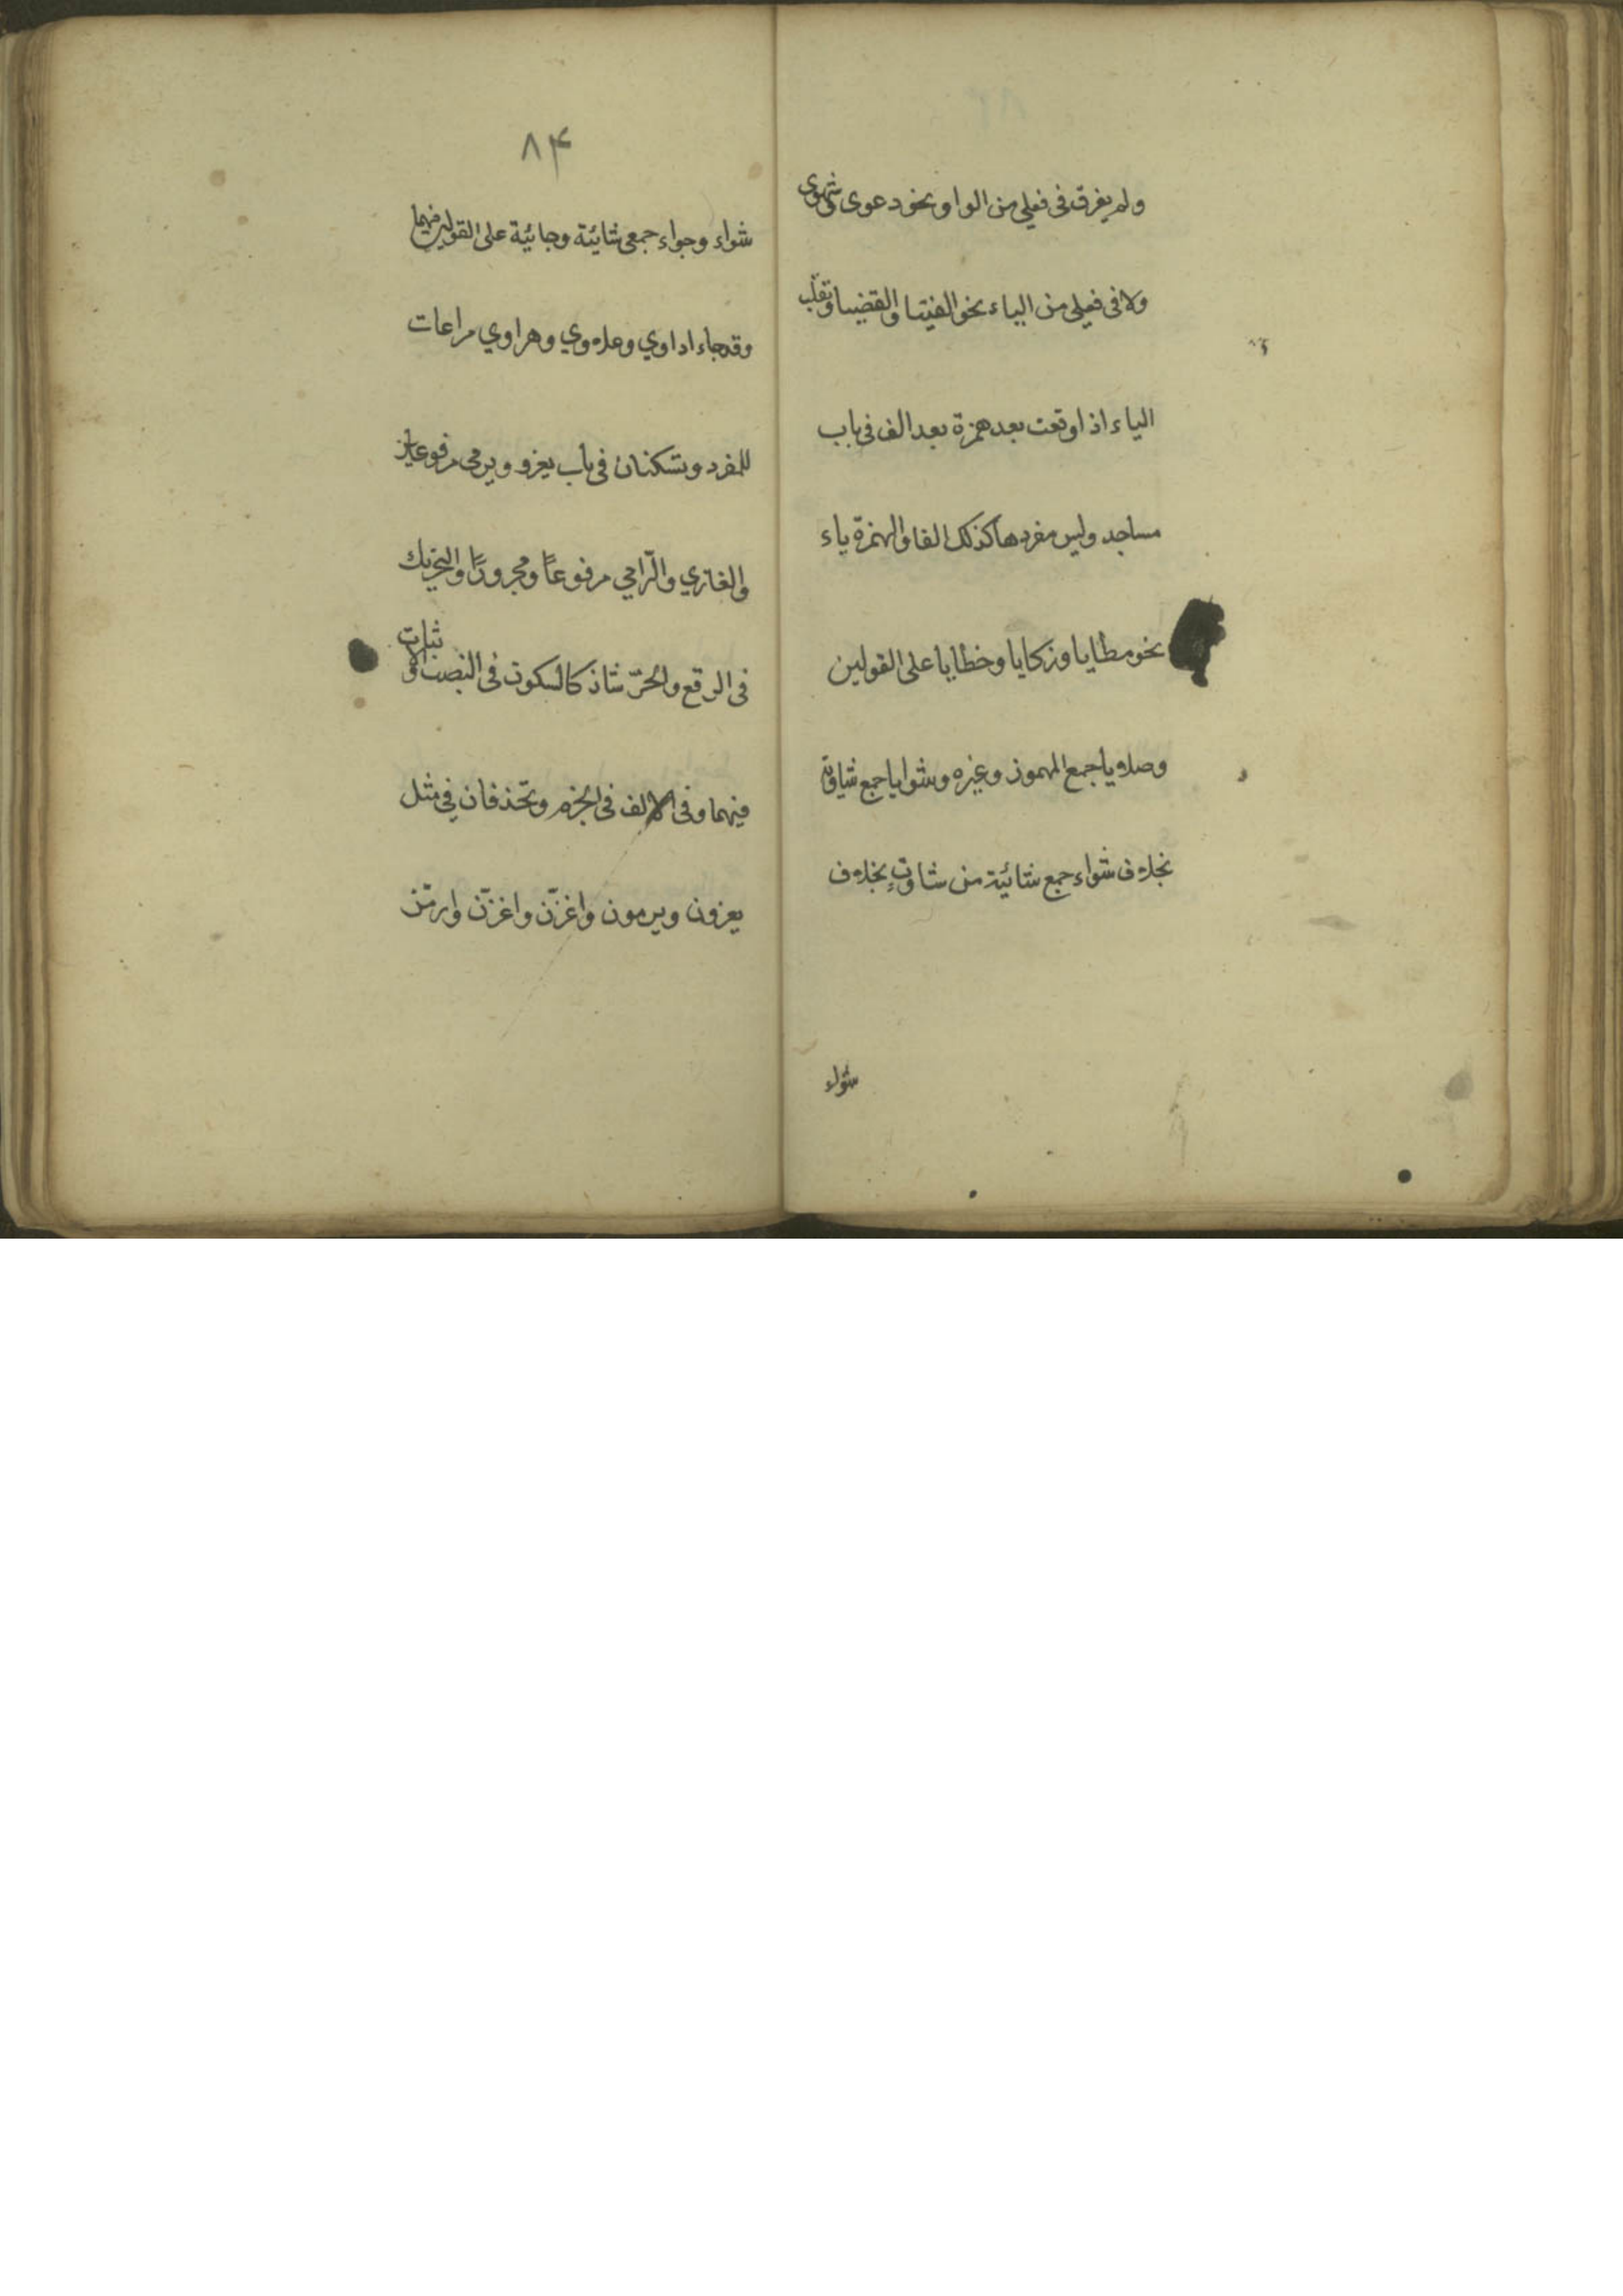 ولم يفرق فى فعلى من الواو نحو دعوى وشهوى
ولا فى فعلى من الياء نحو الفتيا والقضيا وتقلب
الياء اذا وقعت بعد همزة بعد الف فى باب
مساجد وليس مفردها كذلك الفا والهمزة ياء
نحو مطايا وركايا وخطايا على القولين
وصلايا جمع المهموز وغيره وشوايا جمع شاوية
بخلاف شواء جمع شائية من شاوت بخلاف
شواء
۸۴
شواء وجواء جمعى شائية وجائية على القولين فيهما
وقد جاء اداوي وعلاوي وهراوي مراعات
للمفرد وتسكنان فى باب يغزو ويرمى مرفوعين
والغازي والرّامي مرفوعًا ومجرورًا والتحريك
فى الرفع والجرّ شاذ كالسكون فى النصب والاثبات
فيهما وفى الالف فى الجزم وتحذفان في مثل
يغزون ويرمون واغزنّ واغزنّ وارمنّ